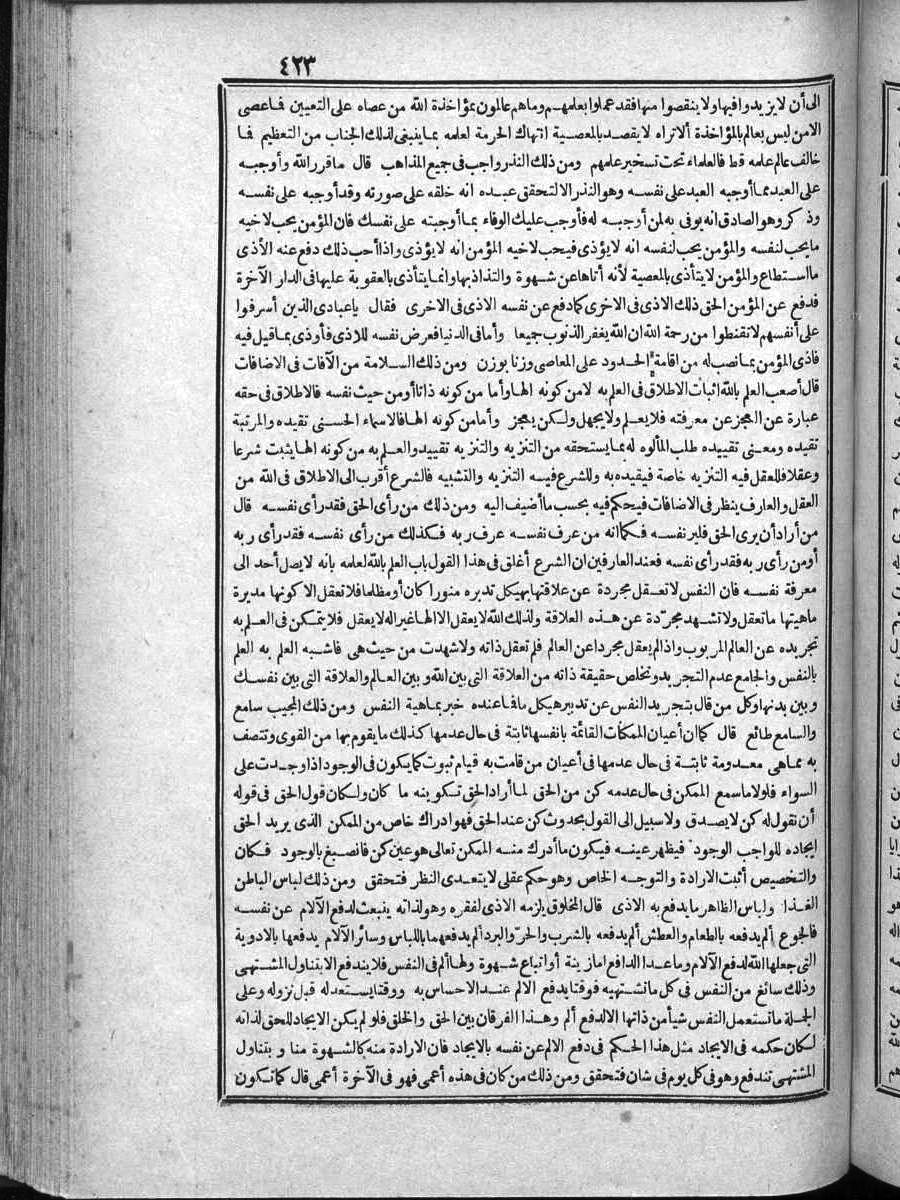 ٤٢٣
الى أن لا يزيدوا فيها ولا ينقصوا منها فقد عملوا بعلمهم وما هم عالمون بمؤاخذة الله من عصاه على التعيين فاعصى
الامن ليس بعالم بالمؤاخذة ألا تراه لا يقصد بالمعصية انتهاك الحرمة لعلمه بما ينبغى لذلك الجناب من التعظيم فا
خالف عالم علمه قط فالعلماء تحت تسخير علمهم ومن ذلك النذر واجب فى جميع المذاهب قال ما قرر الله وأوجبه
على العبد مما أوجبه العبد على نفسه وهو النذر الا لتحقق عبده انه خلقه على صورته وقد أوجبه على نفسه
وذكر وهو الصادق انه يوفى به لمن أوجبه له فأوجب عليك الوفاء بما أوجبته على نفسك فان المؤمن يحب لاخيه
ما يحب لنفسه والمؤمن يحب لنفسه انه لا يؤذى فيحب لاخيه المؤمن انه لا يؤذى واذا أحب ذلك دفع عنه الأذى
ما استطاع والمؤمن لا يتأذى بالمعصية لأنه أتاها عن شهوة والتذاذ بها وانما يتأذى بالعقوبة عليها فى الدار الآخرة
فدفع عن المؤمن الحق ذلك الاذى فى الاخرى كما دفع عن نفسه الاذى فى الاخرى فقال ياعبادى الذين أسرفوا
على أنفسهم لا تقنطوا من رحة الله ان الله يغفر الذنوب جميعا وأما فى الدنيا فعرض نفسه للاذى فأوذى بما قيل فيه
فاذى المؤمن بما نصب له من اقامة الحدود على المعاصى وزنا بوزن ومن ذلك السلامة من الآفات فى الاضافات
قال أصعب العلم بالله اثبات الاطلاق فى العلم به لا من كونه الها وأما من كونه ذاتا أو من حيث نفسه فالاطلاق فى حقه
عبارة عن العجز عن معرفته فلا يعلم ولا يجهل ولكن يعجز وأما من كونه الها فالاسماء الحسنى تقيده والمرتبة
تقيده ومعنى تقييده طلب المألوه له بما يستحقه من التنزيه والتنزيه تقييد والعلم به من كونه الها يثبت شرعا
وعقلا فللعقل فيه التنزيه خاصة فيقيده به وللشرع فيه التنزيه والتشبيه فالشرع أقرب الى الاطلاق فى الله من
العقل والعارف ينظر فى الاضافات فيحكم فيه بحسب ما أضيف اليه ومن ذلك من رأى الحق فقد رأى نفسه قال
من أراد أن يرى الحق فلير نفسه فكما انه من عرف نفسه عرف ربه فكذلك من رأى نفسه فقد رأى ربه
أو من رأى ربه فقد رأى نفسه فعند العارفين ان الشرع أغلق فى هذا القول باب العلم بالله لعلمه بانه لا يصل أحد الى
معرفة نفسه فان النفس لا تعقل مجردة عن علاقتها بهيكل تدبره منورا كان أو مظلما فلا تعقل الا كونها مدبرة
ماهيتها ما تعقل ولا تشهد مجرّدة عن هذه العلاقة ولذلك الله لا يعقل الا الها غير اله لا يعقل فلا يتمكن فى العلم به
تجريده عن العالم المربوب واذا لم يعقل مجردا عن العالم فلم تعقل ذاته ولا شهدت من حيث هى فاشبه العلم به العلم
بالنفس والجامع عدم التجريد وتخلص حقيقة ذاته من العلاقة التى بين الله وبين العالم والعلاقة التى بين نفسك
وبين بدنها وكل من قال بتجريد النفس عن تدبير هيكل ما فاعنده خبر بماهية النفس ومن ذلك المجيب سامع
والسامع طائع قال كما ان أعيان الممكنات القائمة بانفسها ثابتة فى حال عدمها كذلك ما يقوم بها من القوى وتتصف
به مما هى معدومة ثابتة فى حال عدمها فى أعيان من قامت به قيام ثبوت كما يكون فى الوجود اذا وجدت على
السواء فلولا ما سمع الممكن فى حال عدمه كن من الحق لما أراد الحق تكوينه ما كان ولكان قول الحق فى قوله
أن نقول له كن لا يصدق ولا سبيل الى القول بحدوث كن عند الحق فهو ادراك خاص من الممكن الذى يريد الحق
ايجاده للواجب الوجود فيظهر عينه فيكون ما أدرك منه الممكن تعالى هو عين كن فانصبغ بالوجود فكان
والتخصيص أثبت الارادة والتوجه الخاص وهو حكم عقلى لا يتعدى النظر فتحقق ومن ذلك لباس الباطن
الغذا ولباس الظاهر ما يدفع به الاذى قال المخلوق يلزمه الاذى لفقره وهو لذاته ينبعث لدفع الآلام عن نفسه
فالجوع ألم يدفعه بالطعام والعطش ألم يدفعه بالشرب والحرّ والبرد ألم يدفعهما باللباس وسائر الآلام يدفعها بالادوية
التى جعلها الله لدفع الآلام وما عدا الدافع اما زينة أو اتباع شهوة ولها ألم فى النفس فلا يندفع الا بتناول المشتهى
وذلك سائغ من النفس فى كل ما تشتهيه فوقتا يدفع الالم عند الاحساس به ووقتا يستعد له قبل نزوله وعلى
الجلة ما تستعمل النفس شيأ من ذاتها الا لدفع ألم وهذا الفرقان بين الحق والخلق فلو لم يكن الايجاد للحق لذاته
لكان حكمه فى الايجاد مثل هذا الحكم فى دفع الالم عن نفسه بالايجاد فان الارادة منه كالشهوة منا وبتناول
المشتهى تندفع وهو فى كل يوم فى شان فتحقق ومن ذلك من كان فى هذه أعمى فهو فى الآخرة أعمى قال كما تكون